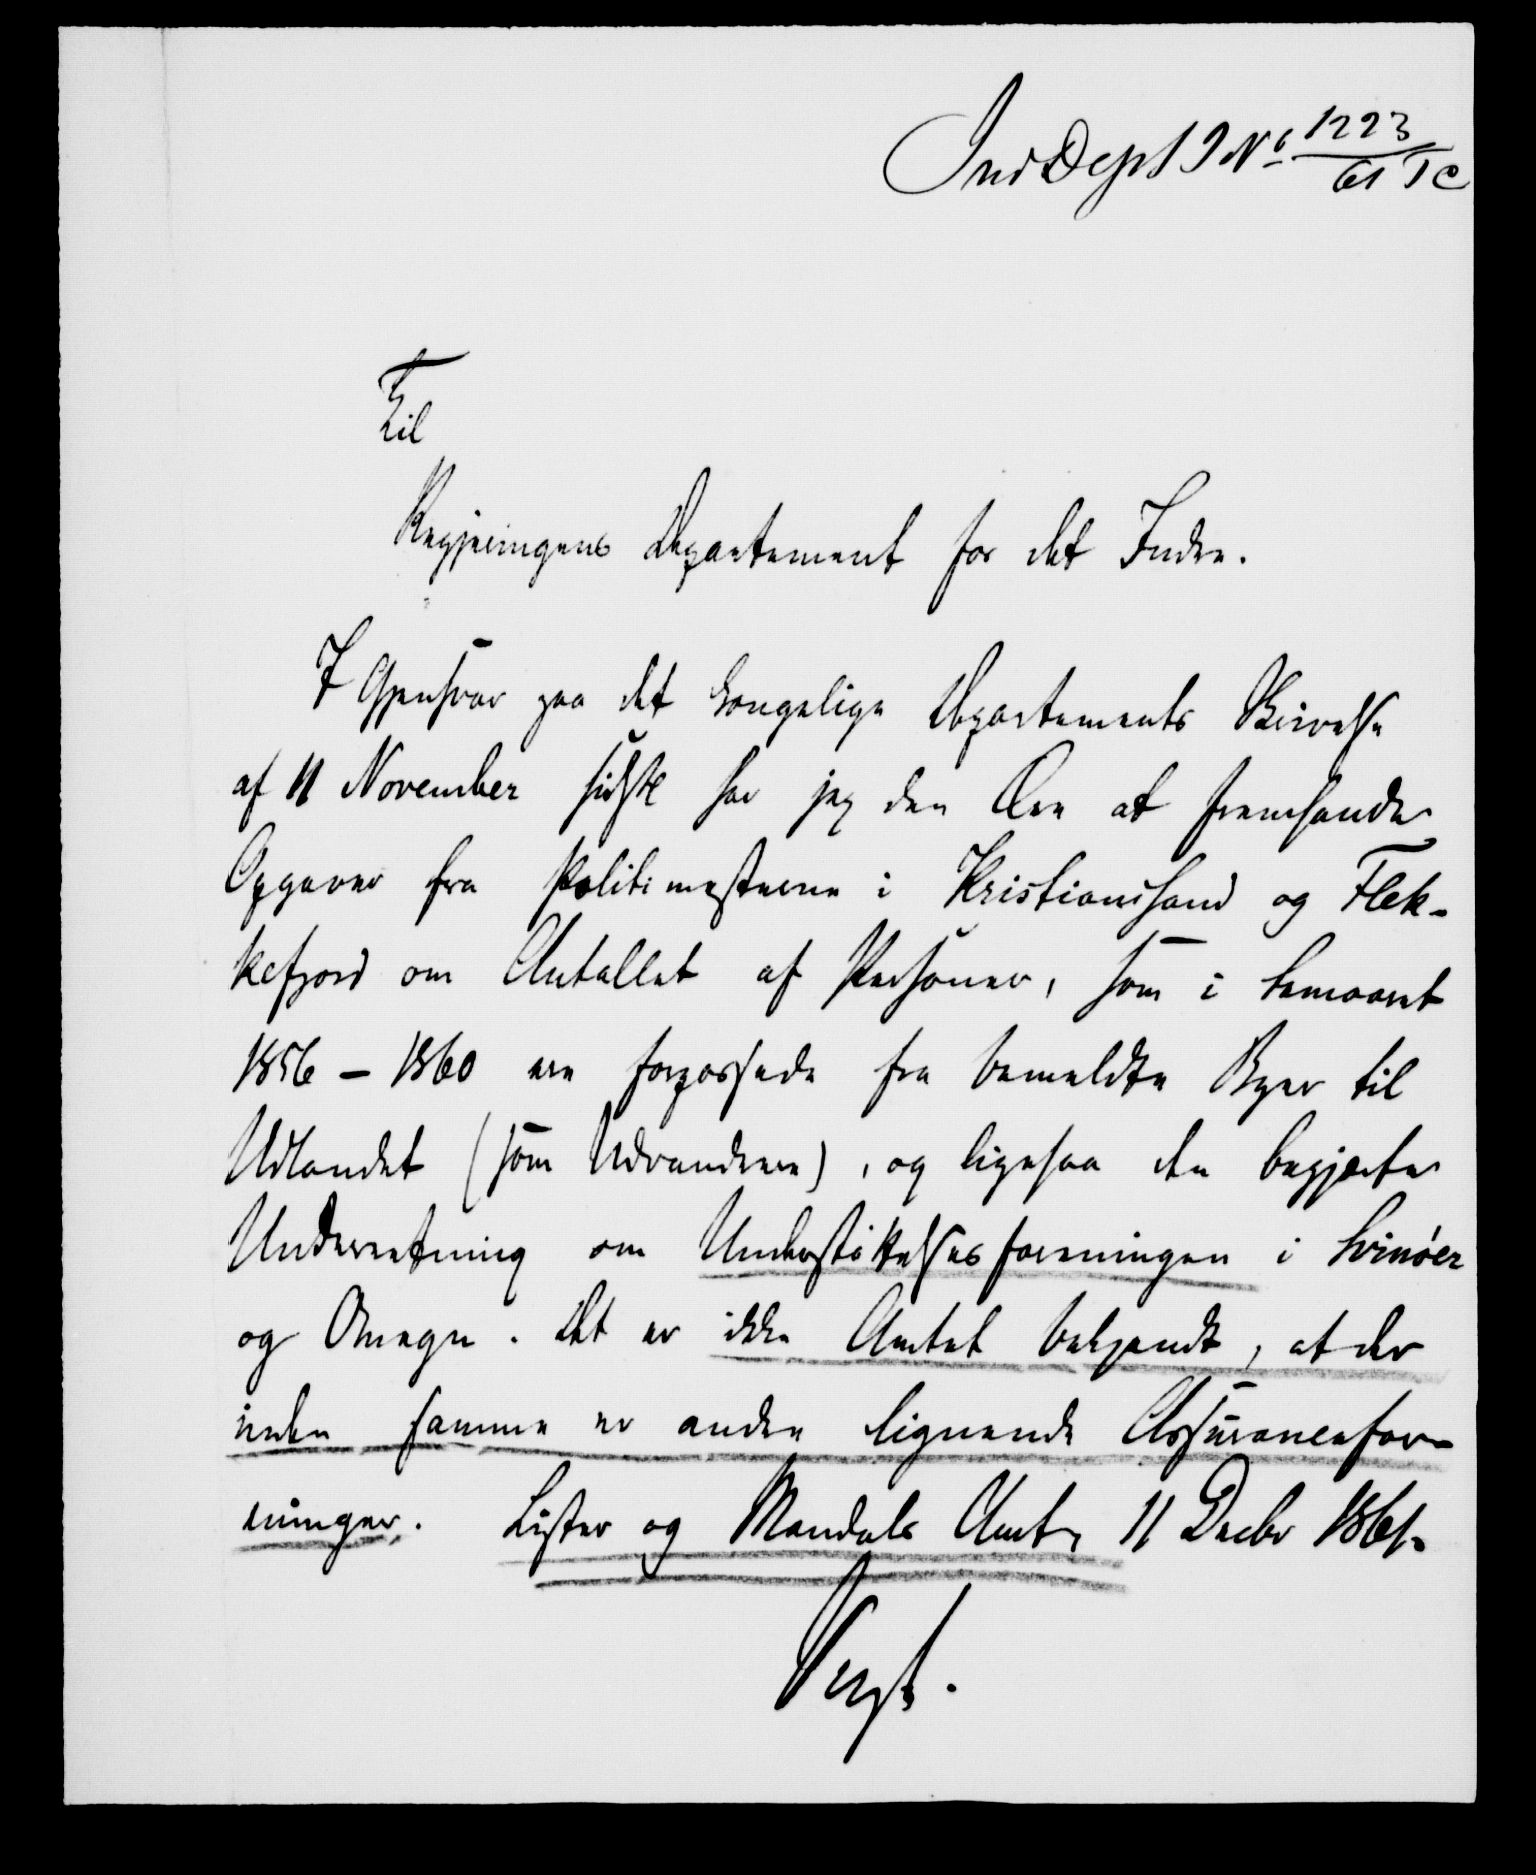 Ind Dept J No 1223/61 T C
Til
Regjeringens Departement for det Indre.
I Gjensvar paa det kongelige Departements Skrivelse
af 11 November sidstl har jeg den Ære at fremsende
Opgaver fra Politimesterne i Kristianssand og Flek-
kefjord om Antallet af Personer, som i Femaaret
1856 – 1860 ere forpassede fra bemeldte Byer til
Udlandet (som Udvandrere), og ligesaa den begjærte
Underretning om Understøttelsesforeningen i Svinøer
og Omegn. Det er ikke Amtet bekjendt, at der
inden samme er anden lignende Assuranceefor-
eninger. Lister og Mandals Amt, 11 Decbr 1861.
Vogt.